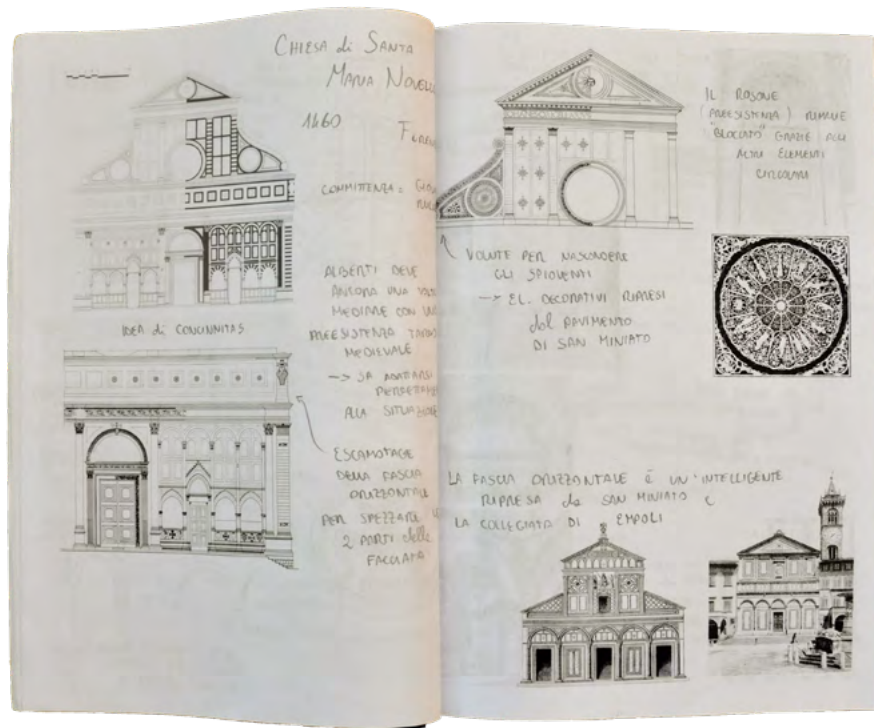 CHIESA di SANTA
MARIA NOVELLA
1460
COMMITTENZA =
ALBERTI DEVE
ANCORA UNA
MEDIARE CON
PREESISTENZA
MEDIEVALE
-> SA ADATTARSI
ALLA SITUAZIONE
IDEA di CONCINNITAS
ESCAMOTAGE
DELLA FASCIA
ORIZZONTALE
PER SPEZZARE
2 PARTI della
FACCIATA
IL ROSONE
(PREESISTENZA) RIMANE
"BLOCCATO" GRAZIE
ALTRI ELEMENTI
CIRCOLARI
VOLUTE PER NASCONDERE
GLI SPIOVENTI
-> EL. DECORATIVI RIPRESI
dal PAVIMENTO
DI SAN MINIATO
LA FASCIA ORIZZONTALE È UN'INTELLIGENTE
RIPRESA da SAN MINIATO e
LA COLLEGIATA DI EMPOLI